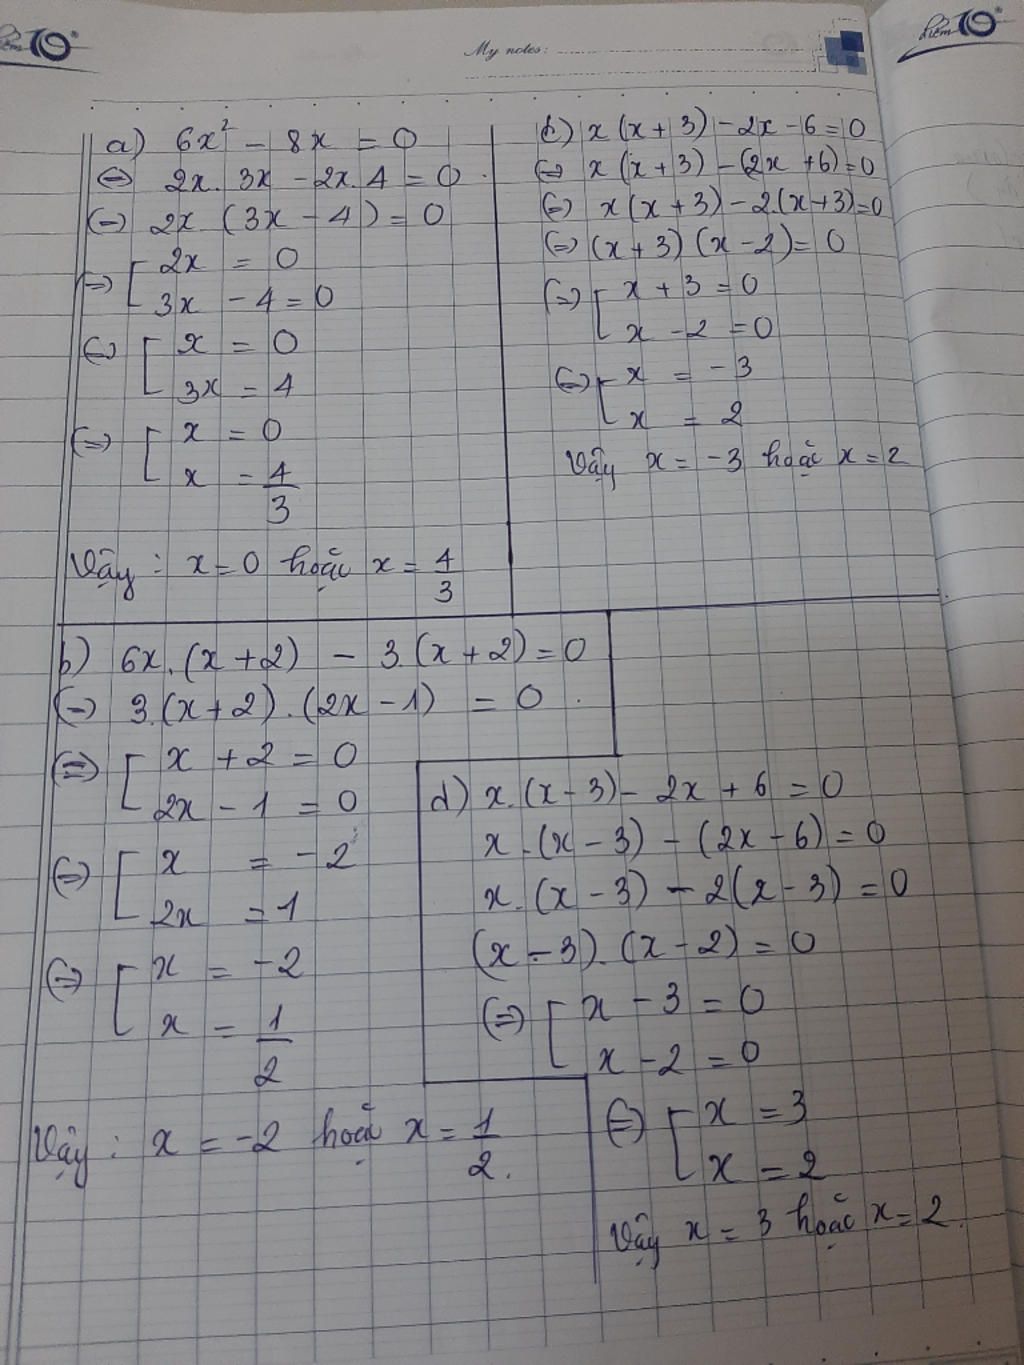 Điểm 10
My notes:
Điểm 10
a) 6x² - 8x = 0
⇔ 2x. 3x - 2x. 4 = 0
⇔ 2x. (3x - 4) = 0
⇔ [ 2x = 0
3x - 4 = 0
⇔ [ x = 0
3x = 4
⇔ [ x = 0
x = 4/3
Vậy : x = 0 hoặc x = 4/3
c) x (x + 3) - 2x - 6 = 0
⇔ x (x + 3) - (2x + 6) = 0
⇔ x (x + 3) - 2.(x + 3) = 0
⇔ (x + 3) (x - 2) = 0
⇔ [ x + 3 = 0
x - 2 = 0
⇔ [ x = - 3
x = 2
Vậy x = - 3 hoặc x = 2
b) 6x. (x + 2) - 3. (x + 2) = 0
⇔ 3. (x + 2) . (2x - 1) = 0
⇔ [ x + 2 = 0
2x - 1 = 0
⇔ [ x = - 2
2x = 1
⇔ [ x = - 2
x = 1/2
Vậy : x = - 2 hoặc x = 1/2.
d) x. (x - 3) - 2x + 6 = 0
x . (x - 3) - (2x - 6) = 0
x. (x - 3) - 2 (x - 3) = 0
(x - 3). (x - 2) = 0
⇔ [ x - 3 = 0
x - 2 = 0
⇔ [ x = 3
x = 2
Vậy x = 3 hoặc x = 2.